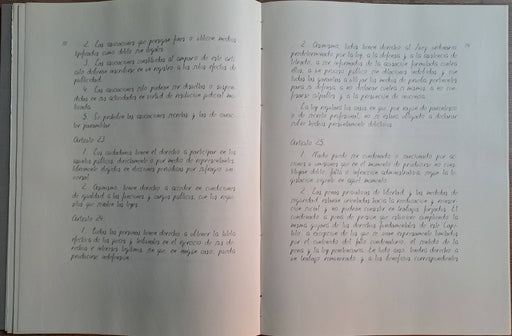 2. Las asociaciones que persigan fines o utilicen medios
tipificados como delito son ilegales.
3. Las asociaciones constituidas al amparo de este artí-
culo deberán inscribirse en un registro a los solos efectos de
publicidad.
4. Las asociaciones sólo podrán ser disueltas o suspen-
didas en sus actividades en virtud de resolución judicial mo-
tivada.
5. Se prohíben las asociaciones secretas y las de carác-
ter paramilitar.
Artículo 23
1. Los ciudadanos tienen el derecho a participar en los
asuntos públicos, directamente o por medio de representantes,
libremente elegidos en elecciones periódicas por sufragio uni-
versal.
2. Asimismo, tienen derecho a acceder en condiciones
de igualdad a las funciones y cargos públicos, con los requi-
sitos que señalen las leyes.
Artículo 24
1. Todas las personas tienen derecho a obtener la tutela
efectiva de los jueces y tribunales en el ejercicio de sus de-
rechos e intereses legítimos, sin que, en ningún caso, pueda
producirse indefensión.
2. Asimismo, todos tienen derecho al Juez ordinario
predeterminado por la ley, a la defensa y a la asistencia de
letrado, a ser informados de la acusación formulada contra
ellos, a un proceso público sin dilaciones indebidas y con
todas las garantías, a utilizar los medios de prueba pertinentes
para su defensa, a no declarar contra sí mismos, a no con-
fesarse culpables y a la presunción de inocencia.
La ley regulará los casos en que, por razón de parentesco
o de secreto profesional, no se estará obligado a declarar
sobre hechos presuntamente delictivos.
Artículo 25
1. Nadie puede ser condenado o sancionado por ac-
ciones u omisiones que en el momento de producirse no cons-
tituyan delito, falta o infracción administrativa, según la le-
gislación vigente en aquel momento.
2. Las penas privativas de libertad y las medidas de
seguridad estarán orientadas hacia la reeducación y reinser-
ción social y no podrán consistir en trabajos forzados. El
condenado a pena de prisión que estuviere cumpliendo la
misma gozará de los derechos fundamentales de este Capí-
tulo, a excepción de los que se vean expresamente limitados
por el contenido del fallo condenatorio, el sentido de la
pena y la ley penitenciaria. En todo caso, tendrá derecho a
un trabajo remunerado y a los beneficios correspondientes